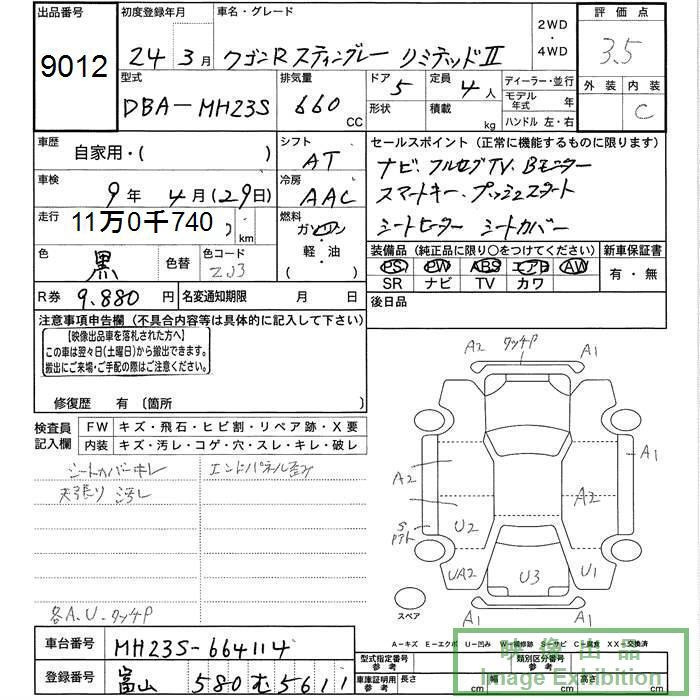 出品番号 初度登録年月 車名・グレード 2WD ・ 4WD 評価点
9012 24年 3月 ワゴンR スティングレー リミテッドⅡ 3.5
型式 排気量 ドア 定員 ディーラー・並行 外装 内装
DBA-MH23S 660 CC 5 4人 モデル年式 年 C
形状 積載 kg ハンドル 左・右
車歴 自家用・( ) シフト AT セールスポイント(正常に機能するものに限ります)
ナビ、フルセグTV、Bモニター
車検 9年 4月(29日) 冷房 AAC スマートキー、プッシュスタート
走行 11万0千740 km 燃料 ガソリン シートヒーター シートカバー
軽・油 ( )
色 黒 色替 色コード ZJ3 装備品(純正品に限り○をつけてください) 新車保証書
PS PW ABS エアB AW 有・無
SR ナビ TV カワ
R券 9,880円 名変通知期限 月 日 後日品
注意事項申告欄(不具合内容等は具体的に記入して下さい)
【映像出品車を落札された方へ】
この車は翌々日(土曜日)から搬出できます。
搬出にご来場・ご手配の際はご注意ください。
修復歴 有(箇所 )
検査員記入欄 FW キズ・飛石・ヒビ割・リペア跡・X要
内装 キズ・汚レ・コゲ・穴・スレ・キレ・破レ
シートカバーキレ エンドパネル歪み
天張り汚レ
各A.U.タッチP
A2 タッチP A1
A1
A2 A2
U2
UA2 U3 U1
A1
スペア
A-キズ E-エクボ U-凹み W-補修跡 S-サビ C-腐食 XX-交換済
車台番号 MH23S-664114
型式指定番号 参考 類別区分番号 参考
登録番号 富山 580 む 5611
車庫証明用 参考 長さ cm 幅 cm 高さ cm
映像出品
Image Exhibition